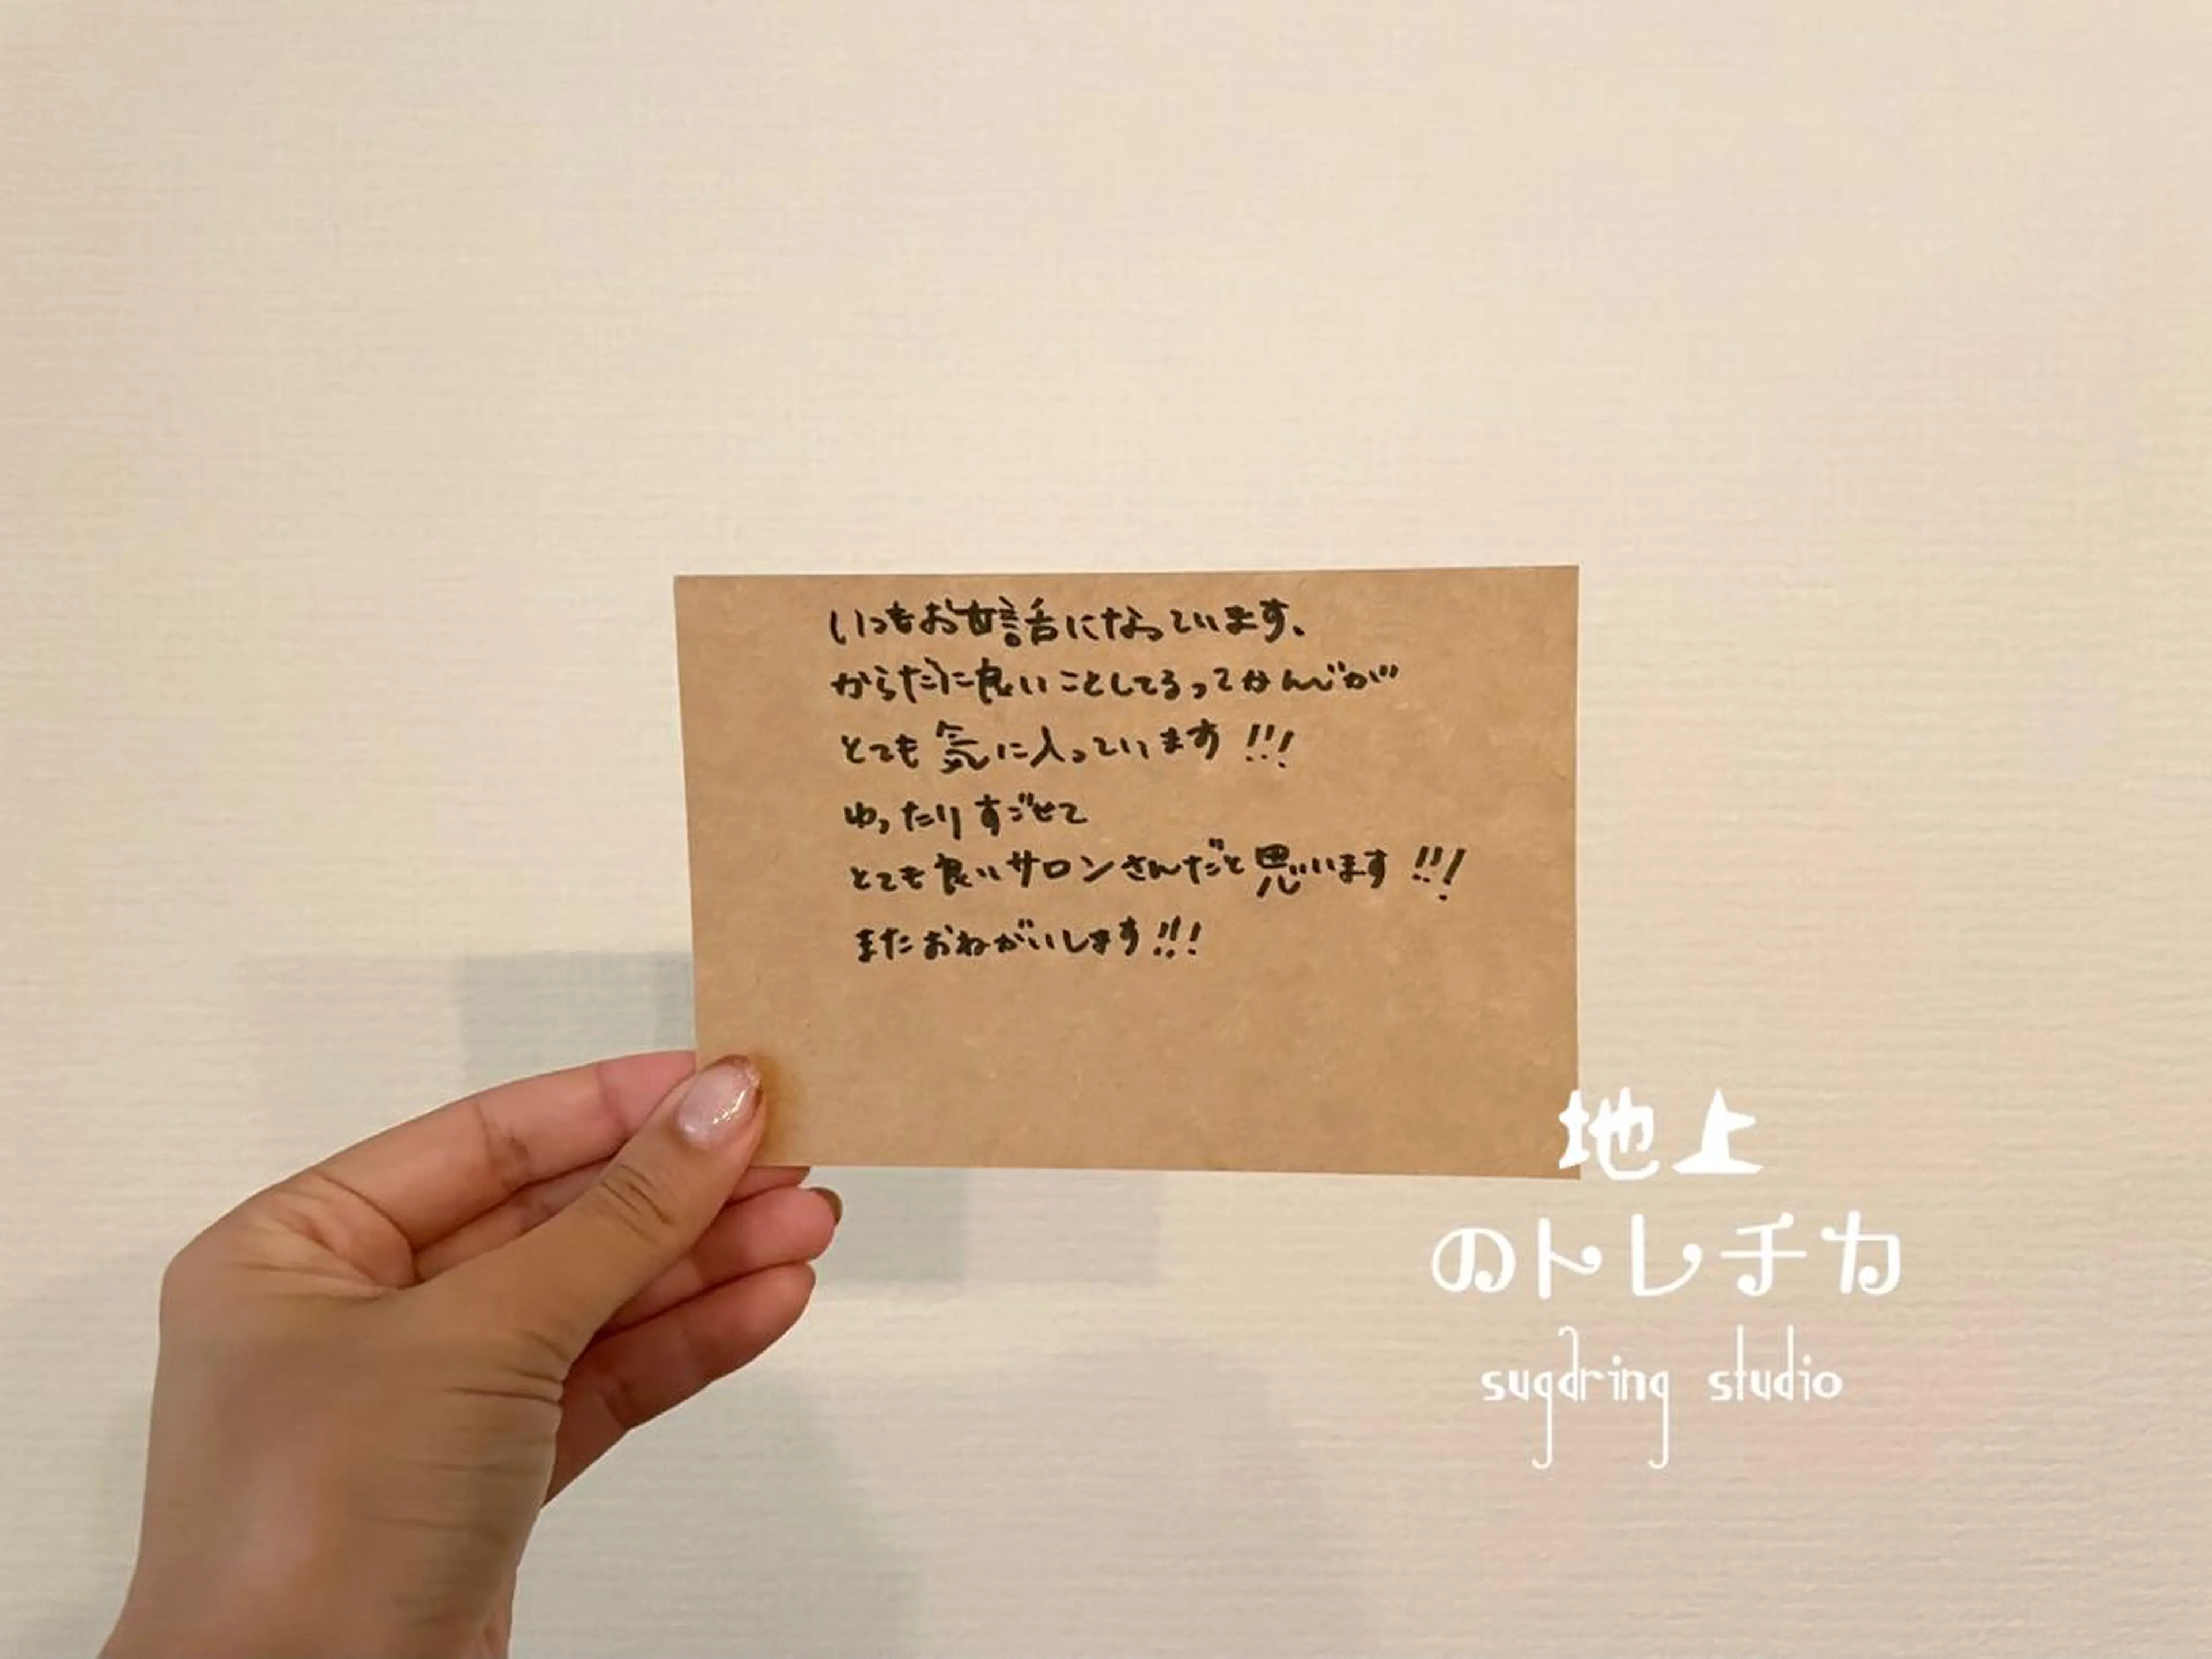 いつもお世話になっています、
からだに良いことしてるってかんじが
とても気に入っています!!!
ゆったりすごせて
とても良いサロンさんだと思います!!!
またおねがいします!!!
地上
のトレチカ
sugdring studio